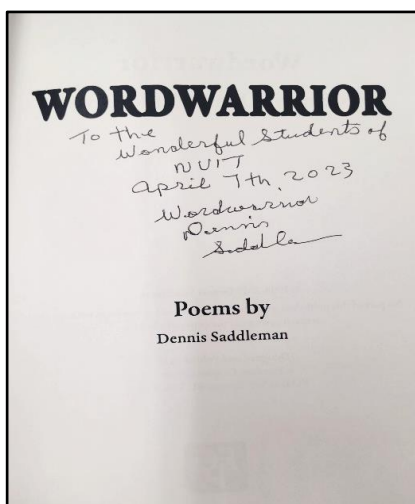 WORDWARRIOR
To the
Wonderful Students of
NVIT
April 7th, 2023
Wordwarrior
Dennis
Saddleman
Poems by
Dennis Saddleman